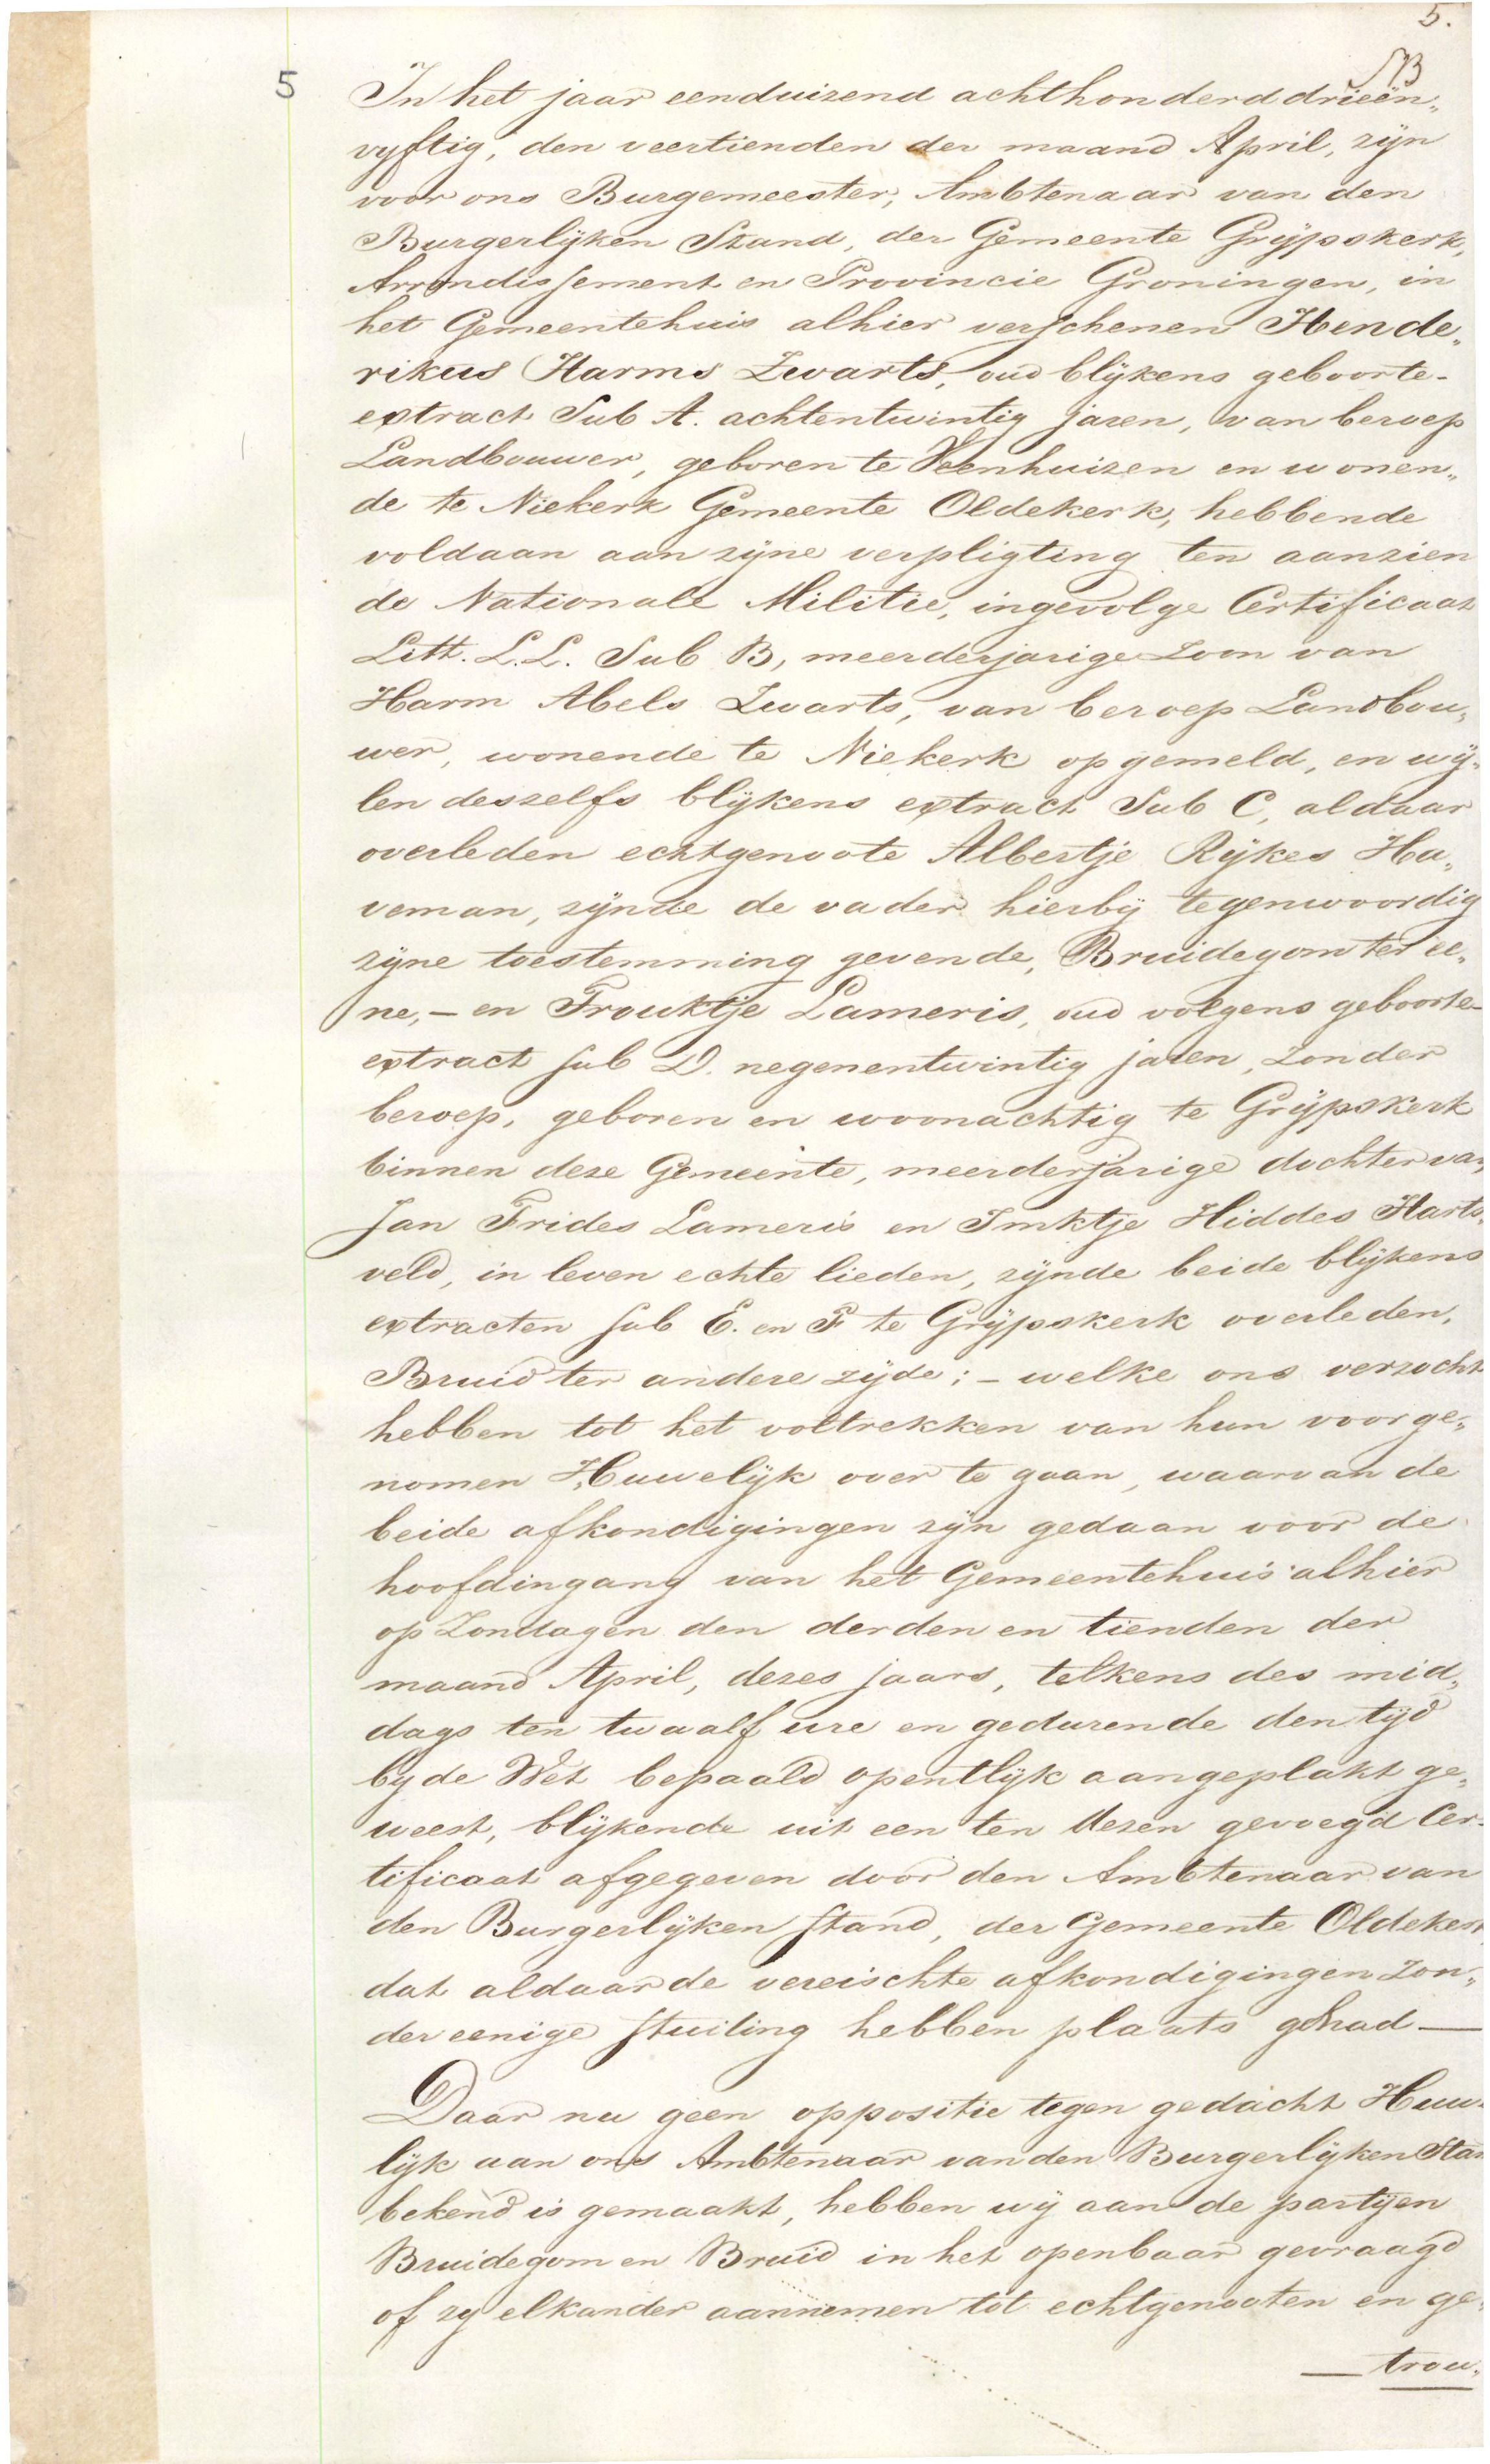 5.
5
In het jaar eenduizend achthonderd drieën„
vyftig, den veertienden der maand April, zijn
voor ons Burgemeester, Ambtenaar van den
Burgerlijken Stand, der Gemeente Grijpskerk,
Arrondissement en Provincie Groningen, in
het Gemeentehuis alhier verschenen Hende„
rikus Harms Zwarts, oud blijkens geboorte-
extract Sub A. achtentwintig jaren, van beroep
Landbouwer, geboren te Veenhuizen en wonen„
de te Niekerk Gemeente Oldekerk, hebbende
voldaan aan zijne verpligting ten aanzien
de Nationale Militie, ingevolge Certificaat
Litt. L.L. Sub B, meerderjarige Zoon van
Harm Abels Zwarts, van beroep Landbou„
wer, wonende te Niekerk opgemeld, en wij„
len deszelfs blijkens extract Sub C, aldaar
overleden echtgenoote Albertje Rijkes Ha„
veman, zijnde de vader hierbij tegenwoordig
zijne toestemming gevende, Bruidegom ter ee„
ne, – en Frouktje Lameris, oud volgens geboorte-
extract sub D. negenentwintig jaren, zonder
beroep, geboren en woonachtig te Grijpskerk
binnen deze Gemeente, meerderjarige dochter van
Jan Frides Lameris en Imktje Hiddes Harts„
veld, in leven echte lieden, zijnde beide blijkens
extracten sub E. en F te Grijpskerk overleden,
Bruid ter andere zijde; – welke ons verzocht
hebben tot het voltrekken van hun voorge„
nomen Huwelijk over te gaan, waarvan de
beide afkondigingen zijn gedaan voor de
hoofdingang van het Gemeentehuis alhier
op Zondagen den derden en tienden der
maand April, dezes jaars, telkens des mid„
dags ten twaalf ure en gedurende den tijd
by de Wet bepaald opentlijk aangeplakt ge„
weest, blijkende uit een ten dezen gevoegd Cer-
tificaat afgegeven door den Ambtenaar van
den Burgerlijken stand, der Gemeente Oldekerk
dat aldaar de vereischte afkondigingen zon„
der eenige stuiting hebben plaats gehad —
Daar nu geen oppositie tegen gedacht Huw-
lijk aan ons Ambtenaar van den Burgerlijken Stan
bekend is gemaakt, hebben wij aan de partijen
Bruidegom en Bruid in het openbaar gevraagd
of zy elkander aannemen tot echtgenooten en ge„
— trou„